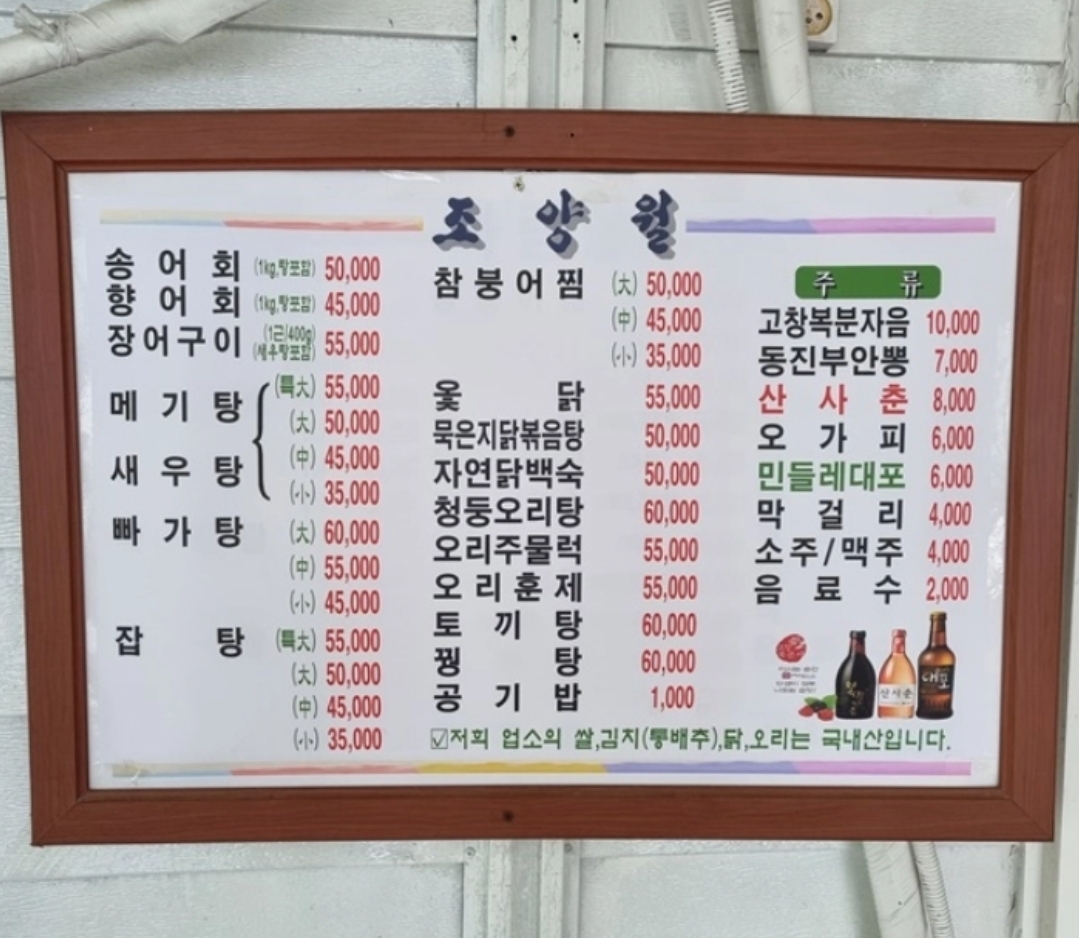 조양월
송어회 (1kg,탕포함) 50,000
향어회 (1kg,탕포함) 45,000
장어구이 (1근/400g) (새우탕포함) 55,000
메기탕 (特大) 55,000
(大) 50,000
새우탕 (中) 45,000
(小) 35,000
빠가탕 (大) 60,000
(中) 55,000
(小) 45,000
잡탕 (特大) 55,000
(大) 50,000
(中) 45,000
(小) 35,000
참붕어찜 (大) 50,000
(中) 45,000
(小) 35,000
옻닭 55,000
묵은지닭볶음탕 50,000
자연닭백숙 50,000
청둥오리탕 60,000
오리주물럭 55,000
오리훈제 55,000
토끼탕 60,000
꿩탕 60,000
공기밥 1,000
주류
고창복분자음 10,000
동진부안뽕 7,000
산사춘 8,000
오가피 6,000
민들레대포 6,000
막걸리 4,000
소주/맥주 4,000
음료수 2,000
산사춘
대포
☑저희 업소의 쌀,김치(통배추),닭,오리는 국내산입니다.